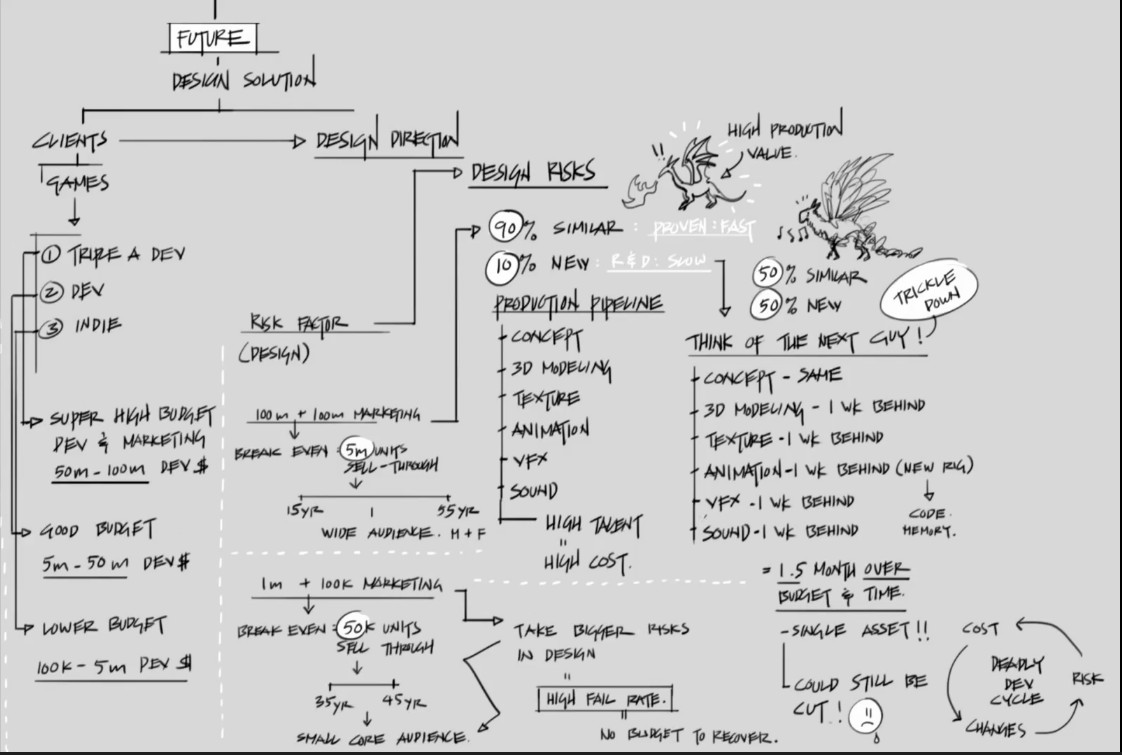 FUTURE
DESIGN SOLUTION
CLIENTS
DESIGN DIRECTION
GAMES
① TRIPE A DEV
② DEV
③ INDIE
SUPER HIGH BUDGET
DEV & MARKETING
50m - 100m DEV $
GOOD BUDGET
5m - 50m DEV $
LOWER BUDGET
100K - 5m DEV $
RISK FACTOR
(DESIGN)
100m + 100m MARKETING
BREAK EVEN : 5m UNITS
SELL-THROUGH
15YR
55YR
WIDE AUDIENCE. M + F
1m + 100K MARKETING
BREAK EVEN : 50K UNITS
SELL THROUGH
35YR
45YR
SMALL CORE AUDIENCE.
DESIGN RISKS
HIGH PRODUCTION
VALUE.
90% SIMILAR : PROVEN : FAST
10% NEW : R & D : SLOW
PRODUCTION PIPELINE
CONCEPT
3D MODELING
TEXTURE
ANIMATION
VFX
SOUND
HIGH TALENT
"
HIGH COST.
TAKE BIGGER RISKS
IN DESIGN
"
HIGH FAIL RATE.
"
NO BUDGET TO RECOVER.
50% SIMILAR
50% NEW
TRICKLE
DOWN
THINK OF THE NEXT GUY!
CONCEPT - SAME
3D MODELING - 1 WK BEHIND
TEXTURE - 1 WK BEHIND
ANIMATION - 1 WK BEHIND (NEW RIG)
CODE.
MEMORY.
VFX - 1 WK BEHIND
SOUND - 1 WK BEHIND
= 1.5 MONTH OVER
BUDGET & TIME.
- SINGLE ASSET!!
COULD STILL BE
CUT!
COST
DEADLY
DEV
CYCLE
RISK
CHANGES